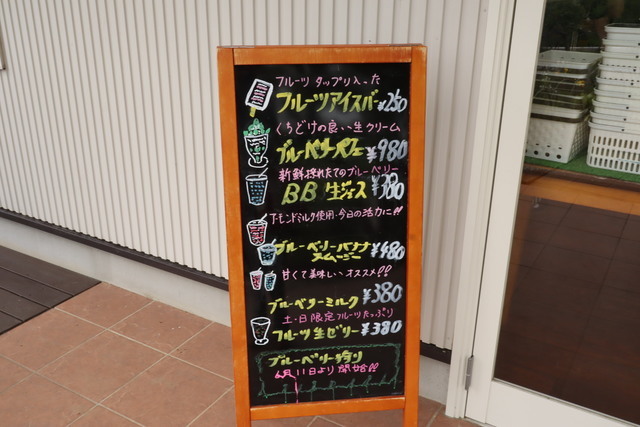 フルーツ タップリ入った
フルーツアイスバー ¥250
くちどけの良い生クリーム
ブルーベリーパフェ ¥980
新鮮採れたてのブルーベリー
BB 生ジュース ¥380
アーモンドミルク使用・今日の活力に!!
ブルーベリーバナナ
スムージー ¥480
甘くて美味しいオススメ!!
ブルーベリーミルク ¥380
土・日限定フルーツたっぷり
フルーツ生ゼリー ¥380
ブルーベリー狩り
6月11日より開始!!